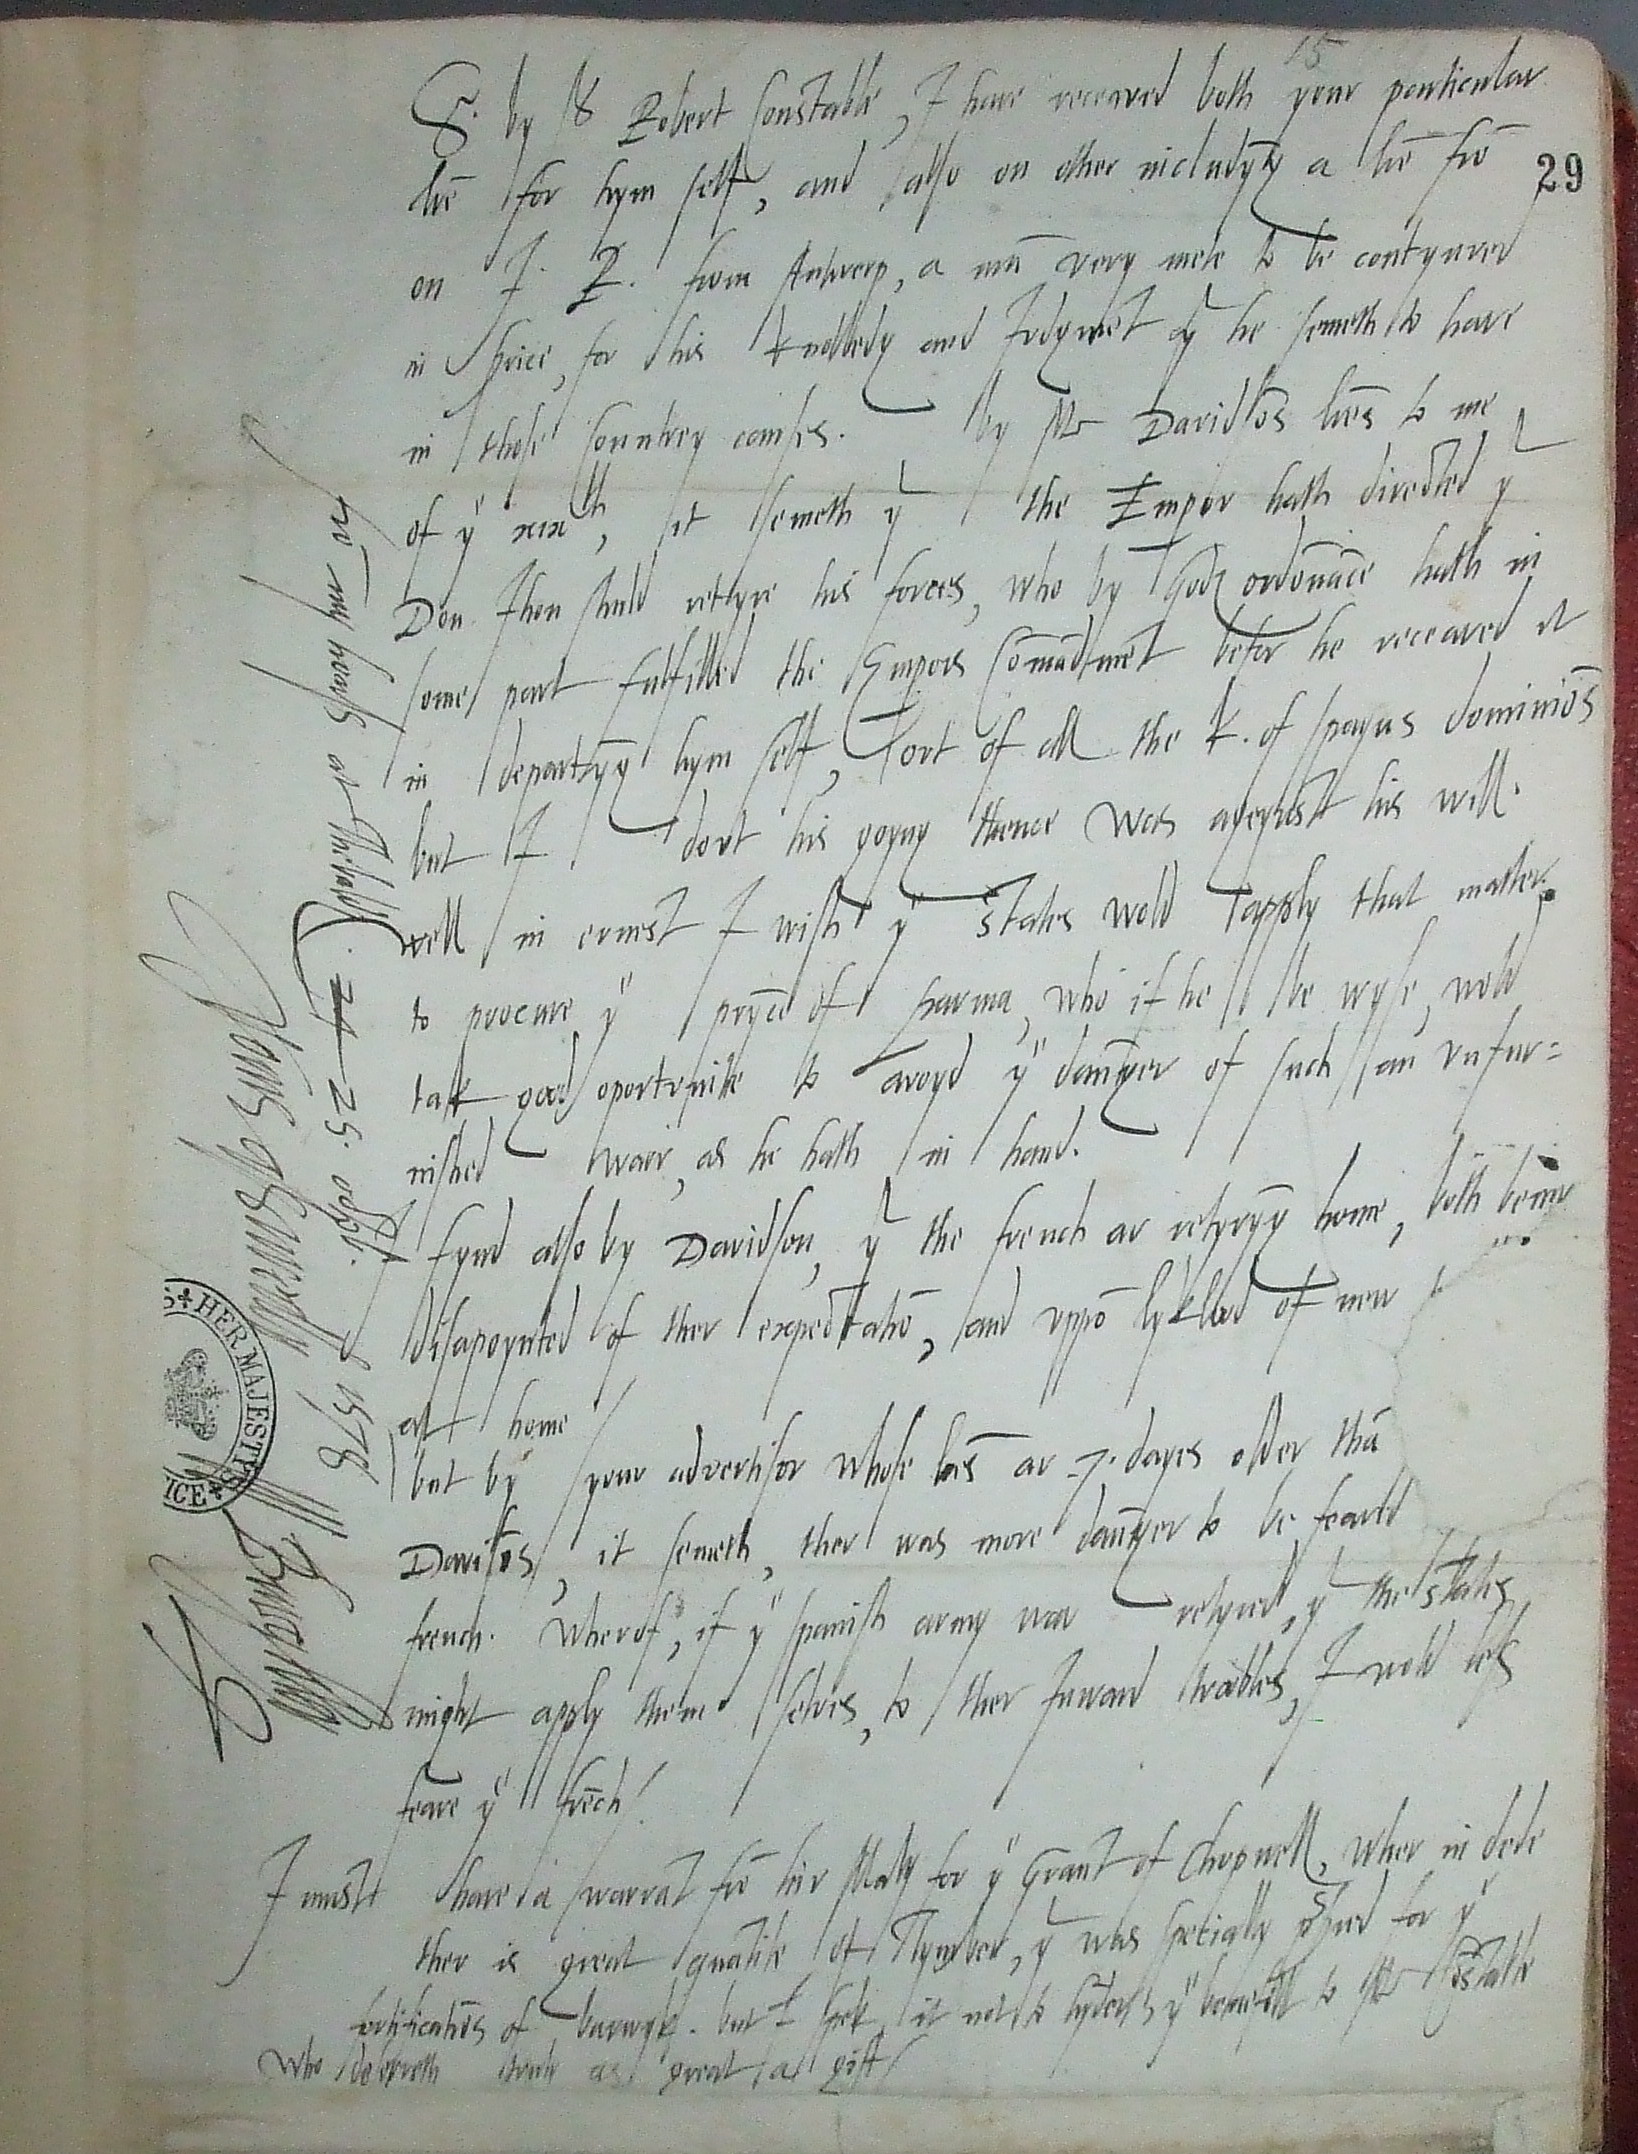 15
29
S. by Sr Robert Constable, I have receaved both your particular
lrē for hym self, and also on other includyng a lrē frō
on I. R. from Antwerp, a mā very mete to be contynued
in price, for his knolledg and Judgmēt yt he semeth to have
in those Countrey causes. by Mr Davidsōs lrēs to me
of ye xixth, it semeth yt the Empor hath directed yt
Don Jhon shuld retyre his forces, who by Gods ordonāce hath in
some part fulfilled the Empors Cōmādmēt befor he receaved it
in departyng hym self, out of all the K. of spayns dominiōs
but I dout his goyng thence was ageynst his will.
well in ernest I wish ye States wold apply that matter
to procure ye prȳce of parma, who if he be wyse, wold
tak good oportunite to avoyd ye daūger of such an unfur=
nished warr, as he hath in hand.
I fynd also by Davidson, yt the french ar retyryng home, both being
disapoynted of ther expectatiō, and uppō lyklod of new
at home/
but by your advertisor whose lrēs ar .7. dayes older thā
Davisōs, it semeth, ther was more daūger to be feared
french. wherof, if ye spanish army war retyred, yt the states
might apply them selves, to ther Inward trobles, I wold less
feare ye frēch/
I must have a warrāt frō hir Maty for ye Grant of Chopwell, wher in dede
ther is great quātite of Tymber, yt was specially for ye
fortificatiōs of barwyk. but I spek it not to hyder ye benefitt to Mr Cōstable
who deserveth as great a gift/
frō my howss at Thebalds. 24 25. octobr. 1578
Yours assuredly
W. Burghley
HER MAJESTY'S